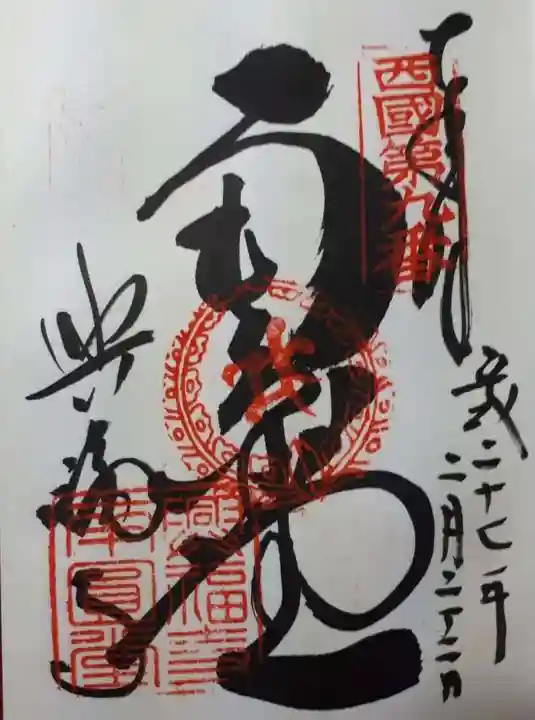 奉拝
西國第九番
平成二十七年
二月二十二日
興福寺
興福寺
南圓堂